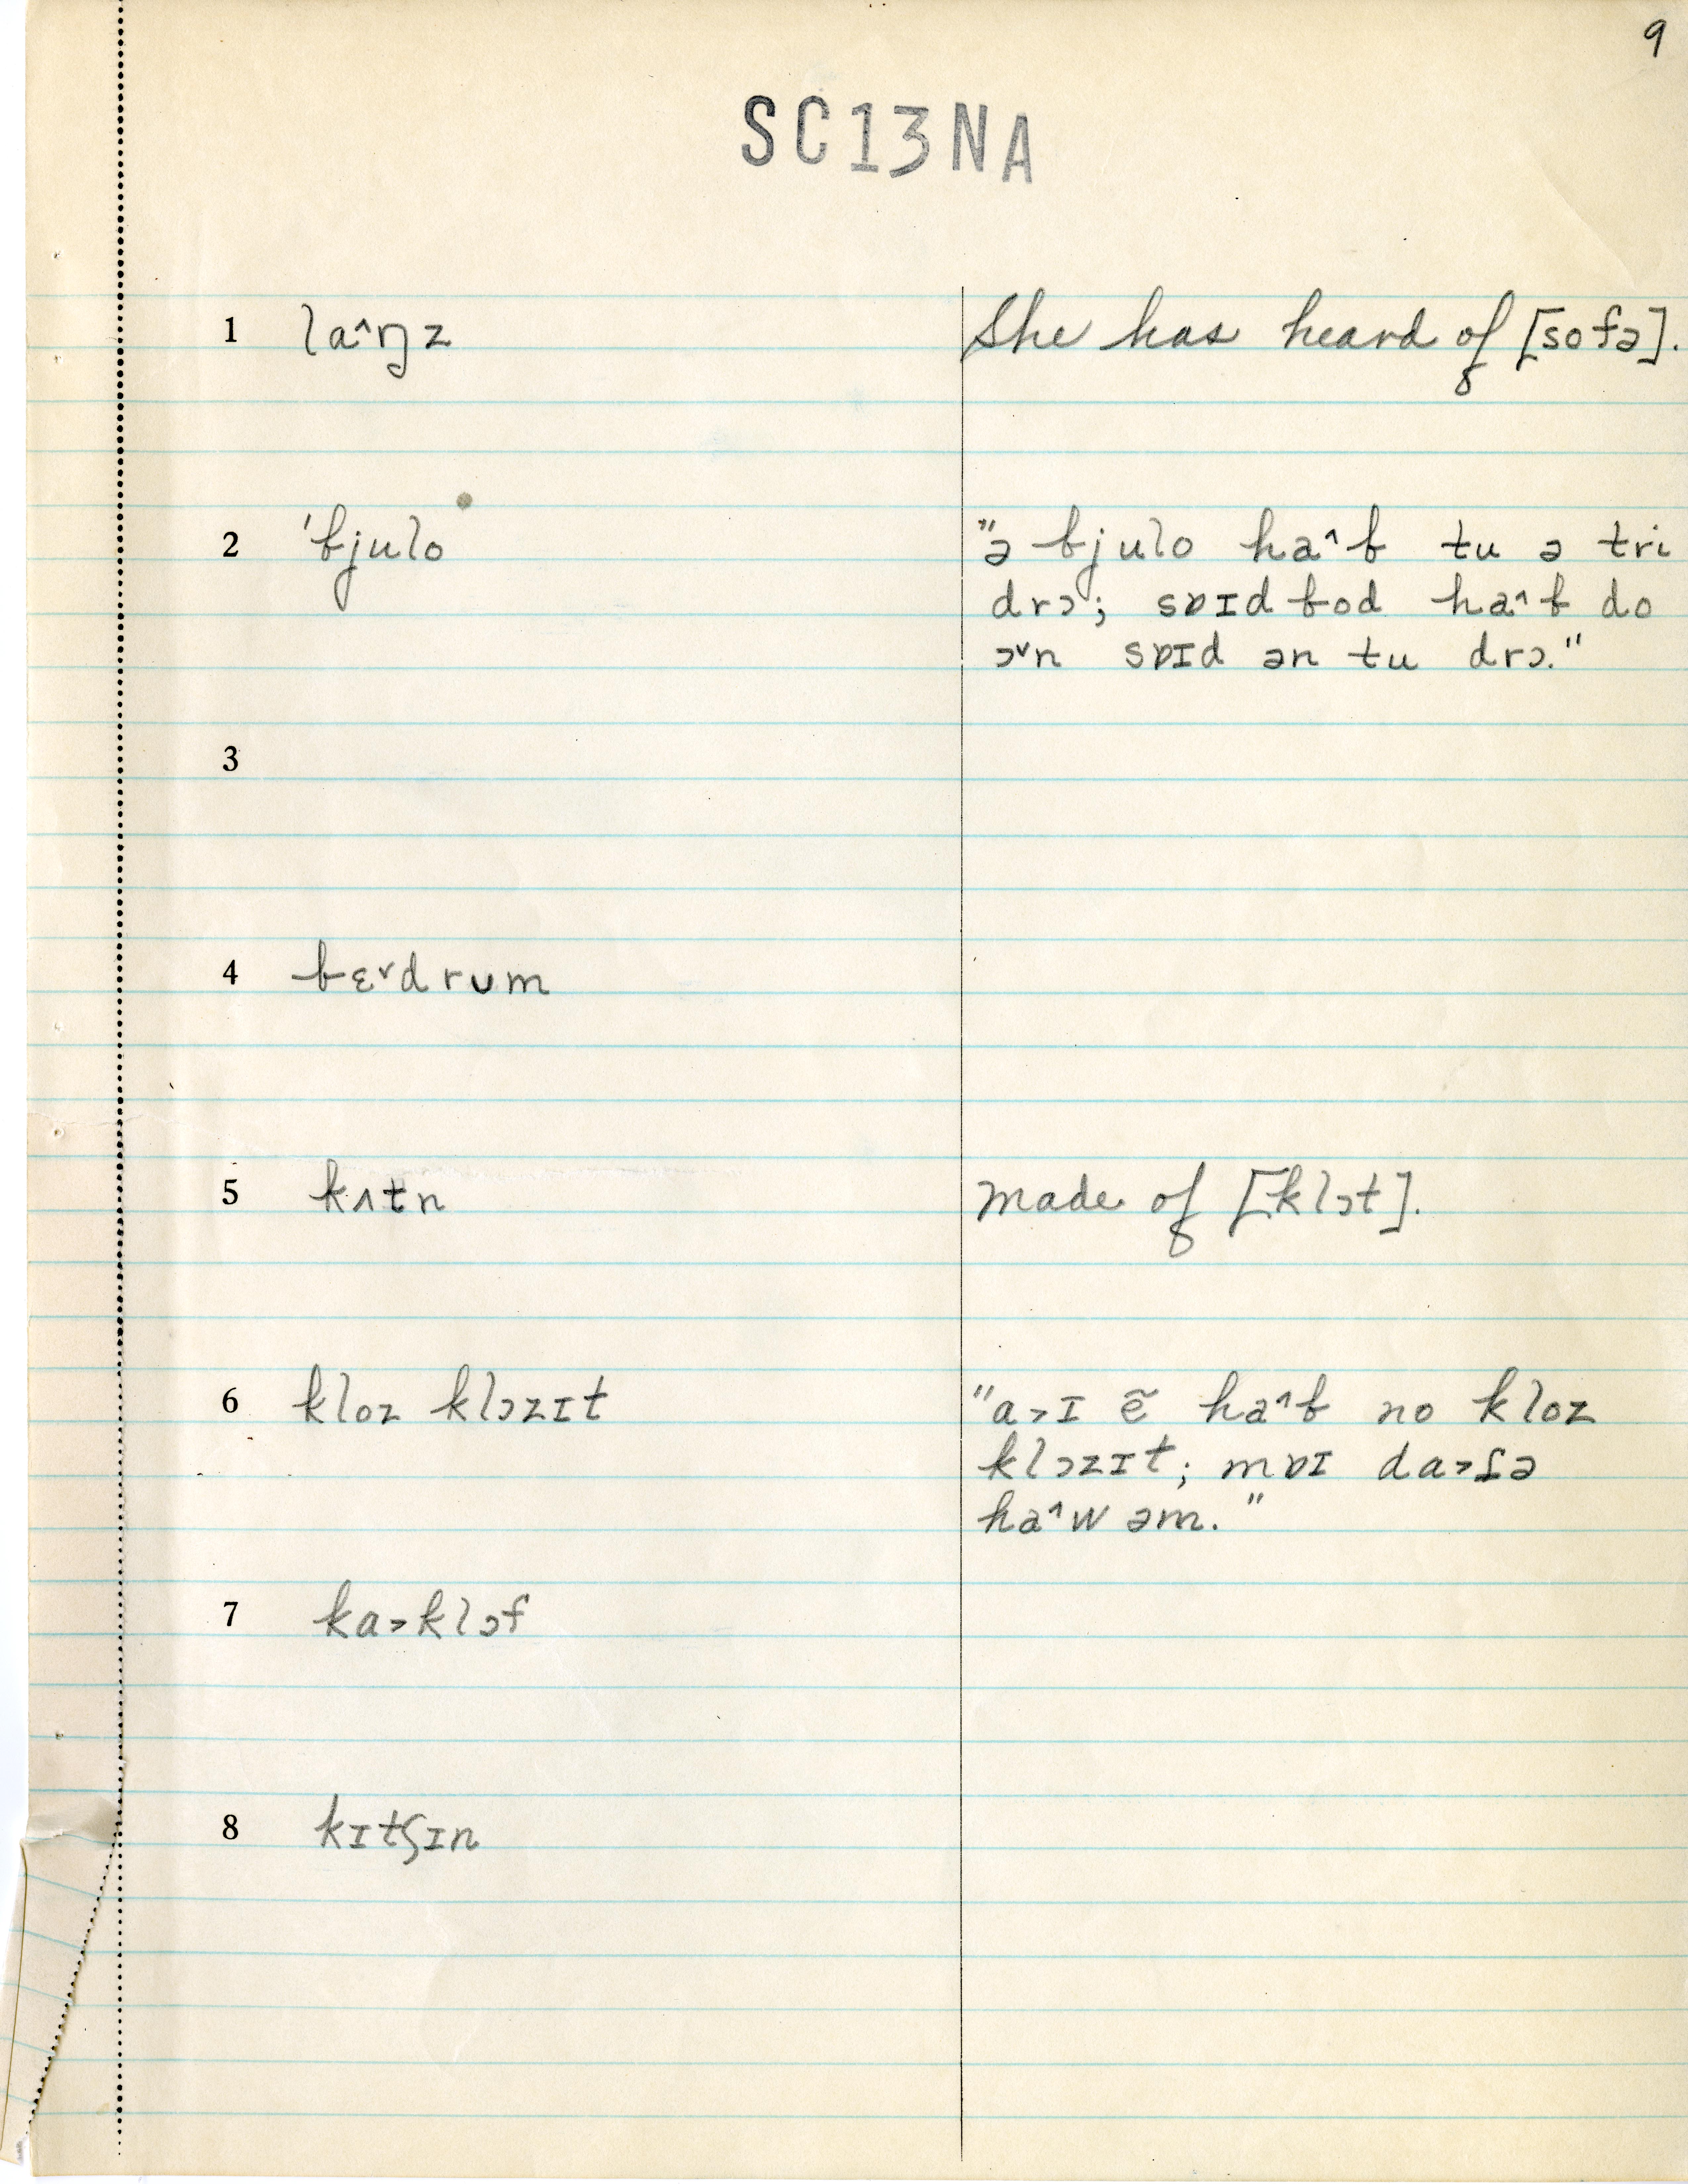 9
SC13NA
1 la˄ŋz She has heard of [sofə].
2 'bjulo "ə bjulo ha˄b tu ə tri
drɔ; sɒɪd bod ha˄b do
ɔ˅n sɒɪd ən tu drɔ."
3
4 bɛ˅drum
5 kʌtn made of [klɔt].
6 kloz klɔzɪt "a˃ɪ ẽ ha˄b no kloz
klɔzɪt; mɒɪ da˃ɾə
ha˄w əm."
7 ka˃klɔf
8 kɪtʃɪn